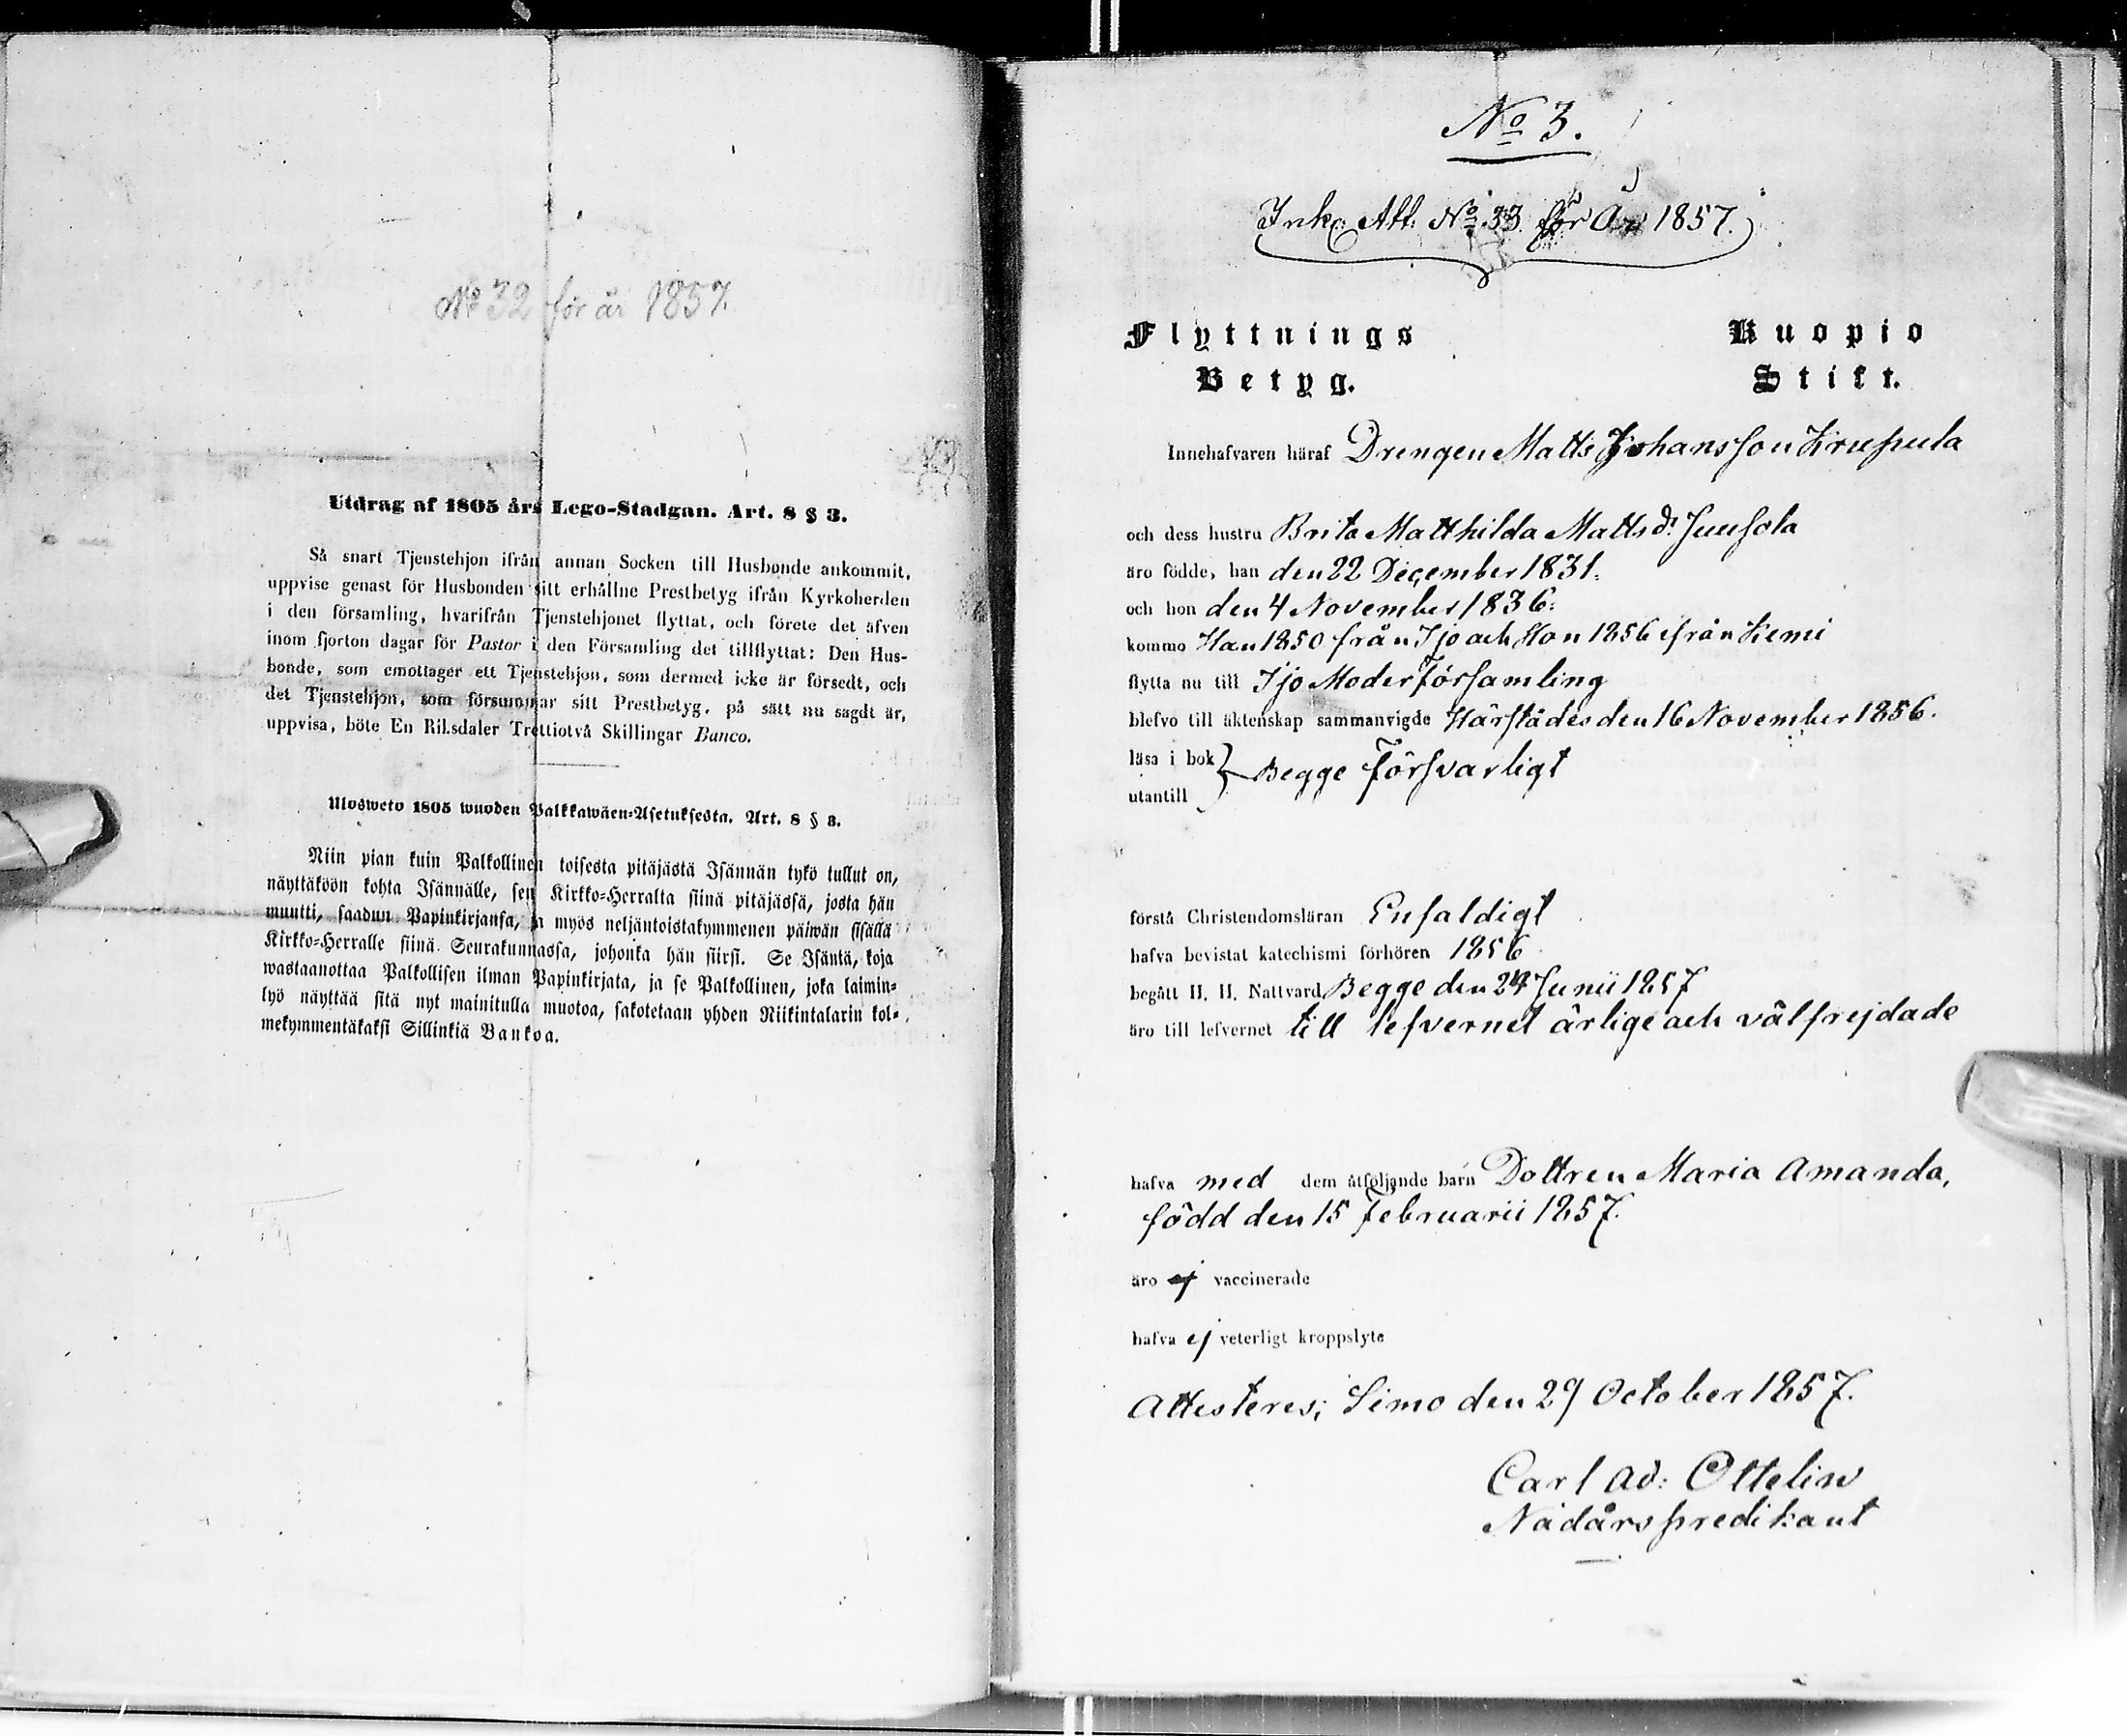 No 32 för år 1857.
Utdrag af 1805 års Lego-Stadgan. Art. 8 § 3.
Så snart Tjenstehjon ifrån annan Socken till Husbonde ankommit,
uppvise genast för Husbonden sitt erhållne Prestbetyg ifrån Kyrkoherden
i den församling, hvarifrån Tjenstehjonet flyttat, och förete det äfven
inom fjorton dagar för Pastor i den Församling det tillflyttat: Den Hus-
bonde, som emottager ett Tjenstehjon, som dermed icke är försedt, och
det Tjenstehjon, som försummar sitt Prestbetyg, på sätt nu sagdt är,
uppvisa, böte En Riksdaler Trettiotvå Skillingar Banco.
Ulosweto 1805 wuoden Palkkawäen-Asetuksesta. Art. 8 § 3.
Niin pian kuin Palkollinen toisesta pitäjästä Isännän tykö tullut on,
näyttäköön kohta Isännälle, sen Kirkko-Herralta siinä pitäjässä, josta hän
muutti, saadun Papinkirjansa, ja myös neljäntoistakymmenen päiwän sisällä
Kirkko-Herralle siinä Seurakunnassa, johonka hän siirsi. Se Isäntä, koja
wastaanottaa Palkollisen ilman Papinkirjata, ja se Palkollinen, joka laimin-
lyö näyttää sitä nyt mainitulla muotoa, sakotetaan yhden Riikintalarin kol-
mekymmentäkaksi Sillinkiä Bankoa.
No 3.
Ink. Att. No 33 för År 1857.
Flyttnings Betyg.
Kuopio Stift.
Innehafvaren häraf Drengen Matts Johansson Krupula
och dess hustru Brita Matthilda Mattsdr Juusola
äro födde, han den 22 December 1831.
och hon den 4 November 1836.
kommo Han 1850 från Ijo och Hon 1856 ifrån Kemi
flytta nu till Ijo Moderförsamling
blefvo till äktenskap sammanvigde Härstädes den 16 November 1856.
läsa i bok } Begge Försvarligt
utantill
förstå Christendomsläran Enfaldigt
hafva bevistat katechismi förhören 1856
begått H. H. Nattvard Begge den 24 Junii 1857
äro till lefvernet till lefvernet ärlige och välfrejdade
hafva med dem åtföljande barn Dottren Maria Amanda,
född den 15 Februarii 1857.
äro ej vaccinerade
hafva ej veterligt kroppslyte
Attesteres; Simo den 29 October 1857.
Carl Ad: Ottelin
Nådårspredikant